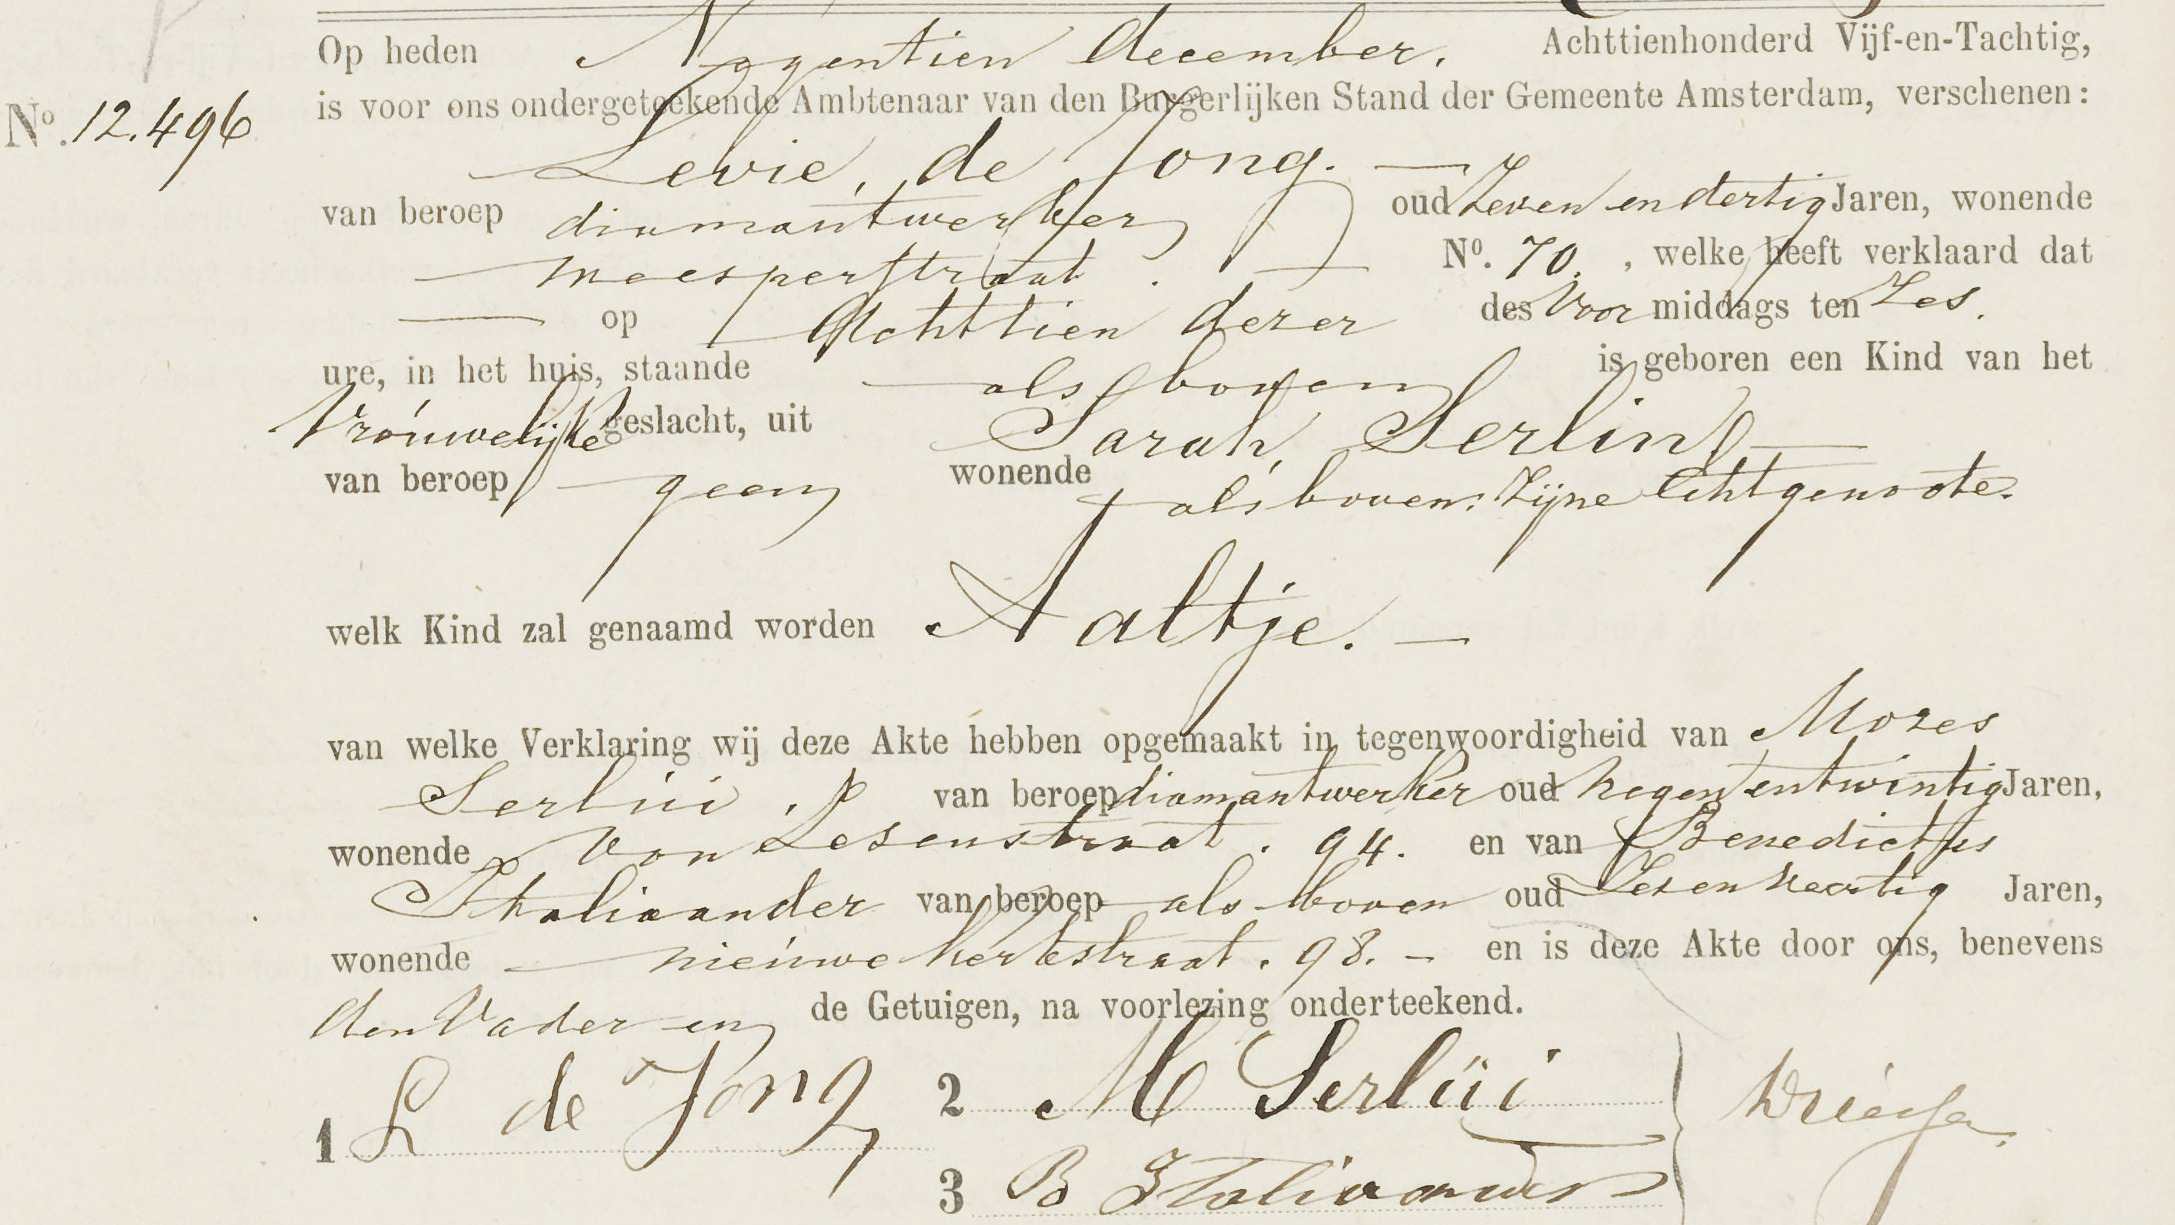 Op heden Negentien december. Achttienhonderd Vijf-en-Tachtig,
No. 12.496
is voor ons ondergeteekende Ambtenaar van den Burgerlijken Stand der Gemeente Amsterdam, verschenen:
Levie, de Jong. —
van beroep diamantwerker oud Zeven en dertig Jaren, wonende
— Weesperstraat. — No. 70. , welke heeft verklaard dat
— op Achttien dezer des Voor middags ten Zes.
ure, in het huis, staande — als boven is geboren een Kind van het
Vrouwelijke geslacht, uit Sarah, Serlin —
van beroep — geen wonende als boven: Zijne Echtgenoote.
welk Kind zal genaamd worden Aaltje. —
van welke Verklaring wij deze Akte hebben opgemaakt in tegenwoordigheid van Mozes
Serlui, van beroep diamantwerker oud Negen entwintig Jaren,
wonende Von Zesenstraat. 94. en van Benedictus
Italiaander van beroep als boven oud Zes en Veertig Jaren,
wonende — nieuwe kerkstraat. 98. — en is deze Akte door ons, benevens
den Vader en de Getuigen, na voorlezing onderteekend.
1 L de Jong
2 M Serlüi
3 B Italiaander